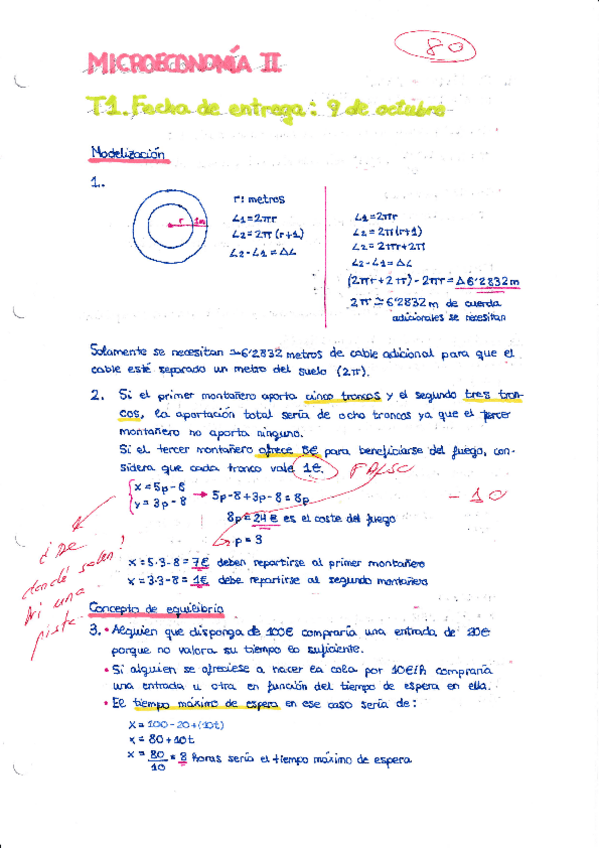 80
MICROECONOMÍA II
T1. Fecha de entrega: 9 de octubre
Modelización
1.
r 1m
r: metros
L1 = 2πr
L2 = 2π (r+1)
L2 - L1 = ΔL
L1 = 2πr
L2 = 2π(r+1)
L2 = 2πr+2π
L2 - L1 = ΔL
(2πr + 2π) - 2πr = Δ6'2832m
2π ≃ 6'2832 m de cuerda
adicionales se necesitan
Solamente se necesitan ≃6'2832 metros de cable adicional para que el
cable esté separado un metro del suelo (2π).
2. Si el primer montañero aporta cinco troncos y el segundo tres tron-
cos, la aportación total sería de ocho troncos ya que el tercer
montañero no aporta ninguno.
Si el tercer montañero ofrece 8€ para beneficiarse del fuego, con-
sidera que cada tronco vale 1€. FALSO
x = 5p - 8
y = 3p - 8 → 5p-8+3p-8 = 8p
- 10
8p = 24€ es el coste del fuego
p = 3
¿De
donde salen?
Ni una
pista.
x = 5·3-8 = 7€ deben repartirse al primer montañero
x = 3·3-8 = 1€ debe repartirse al segundo montañero
Concepto de equilibrio
3. • Alguien que disponga de 100€ compraría una entrada de 20€
porque no valora su tiempo lo suficiente.
• Si alguien se ofreciese a hacer la cola por 10€/h compraría
una entrada u otra en función del tiempo de espera en ella.
• El tiempo máximo de espera en ese caso sería de:
x = 100-20+(10t)
x = 80+10t
x = 80/10 = 8 horas sería el tiempo máximo de espera